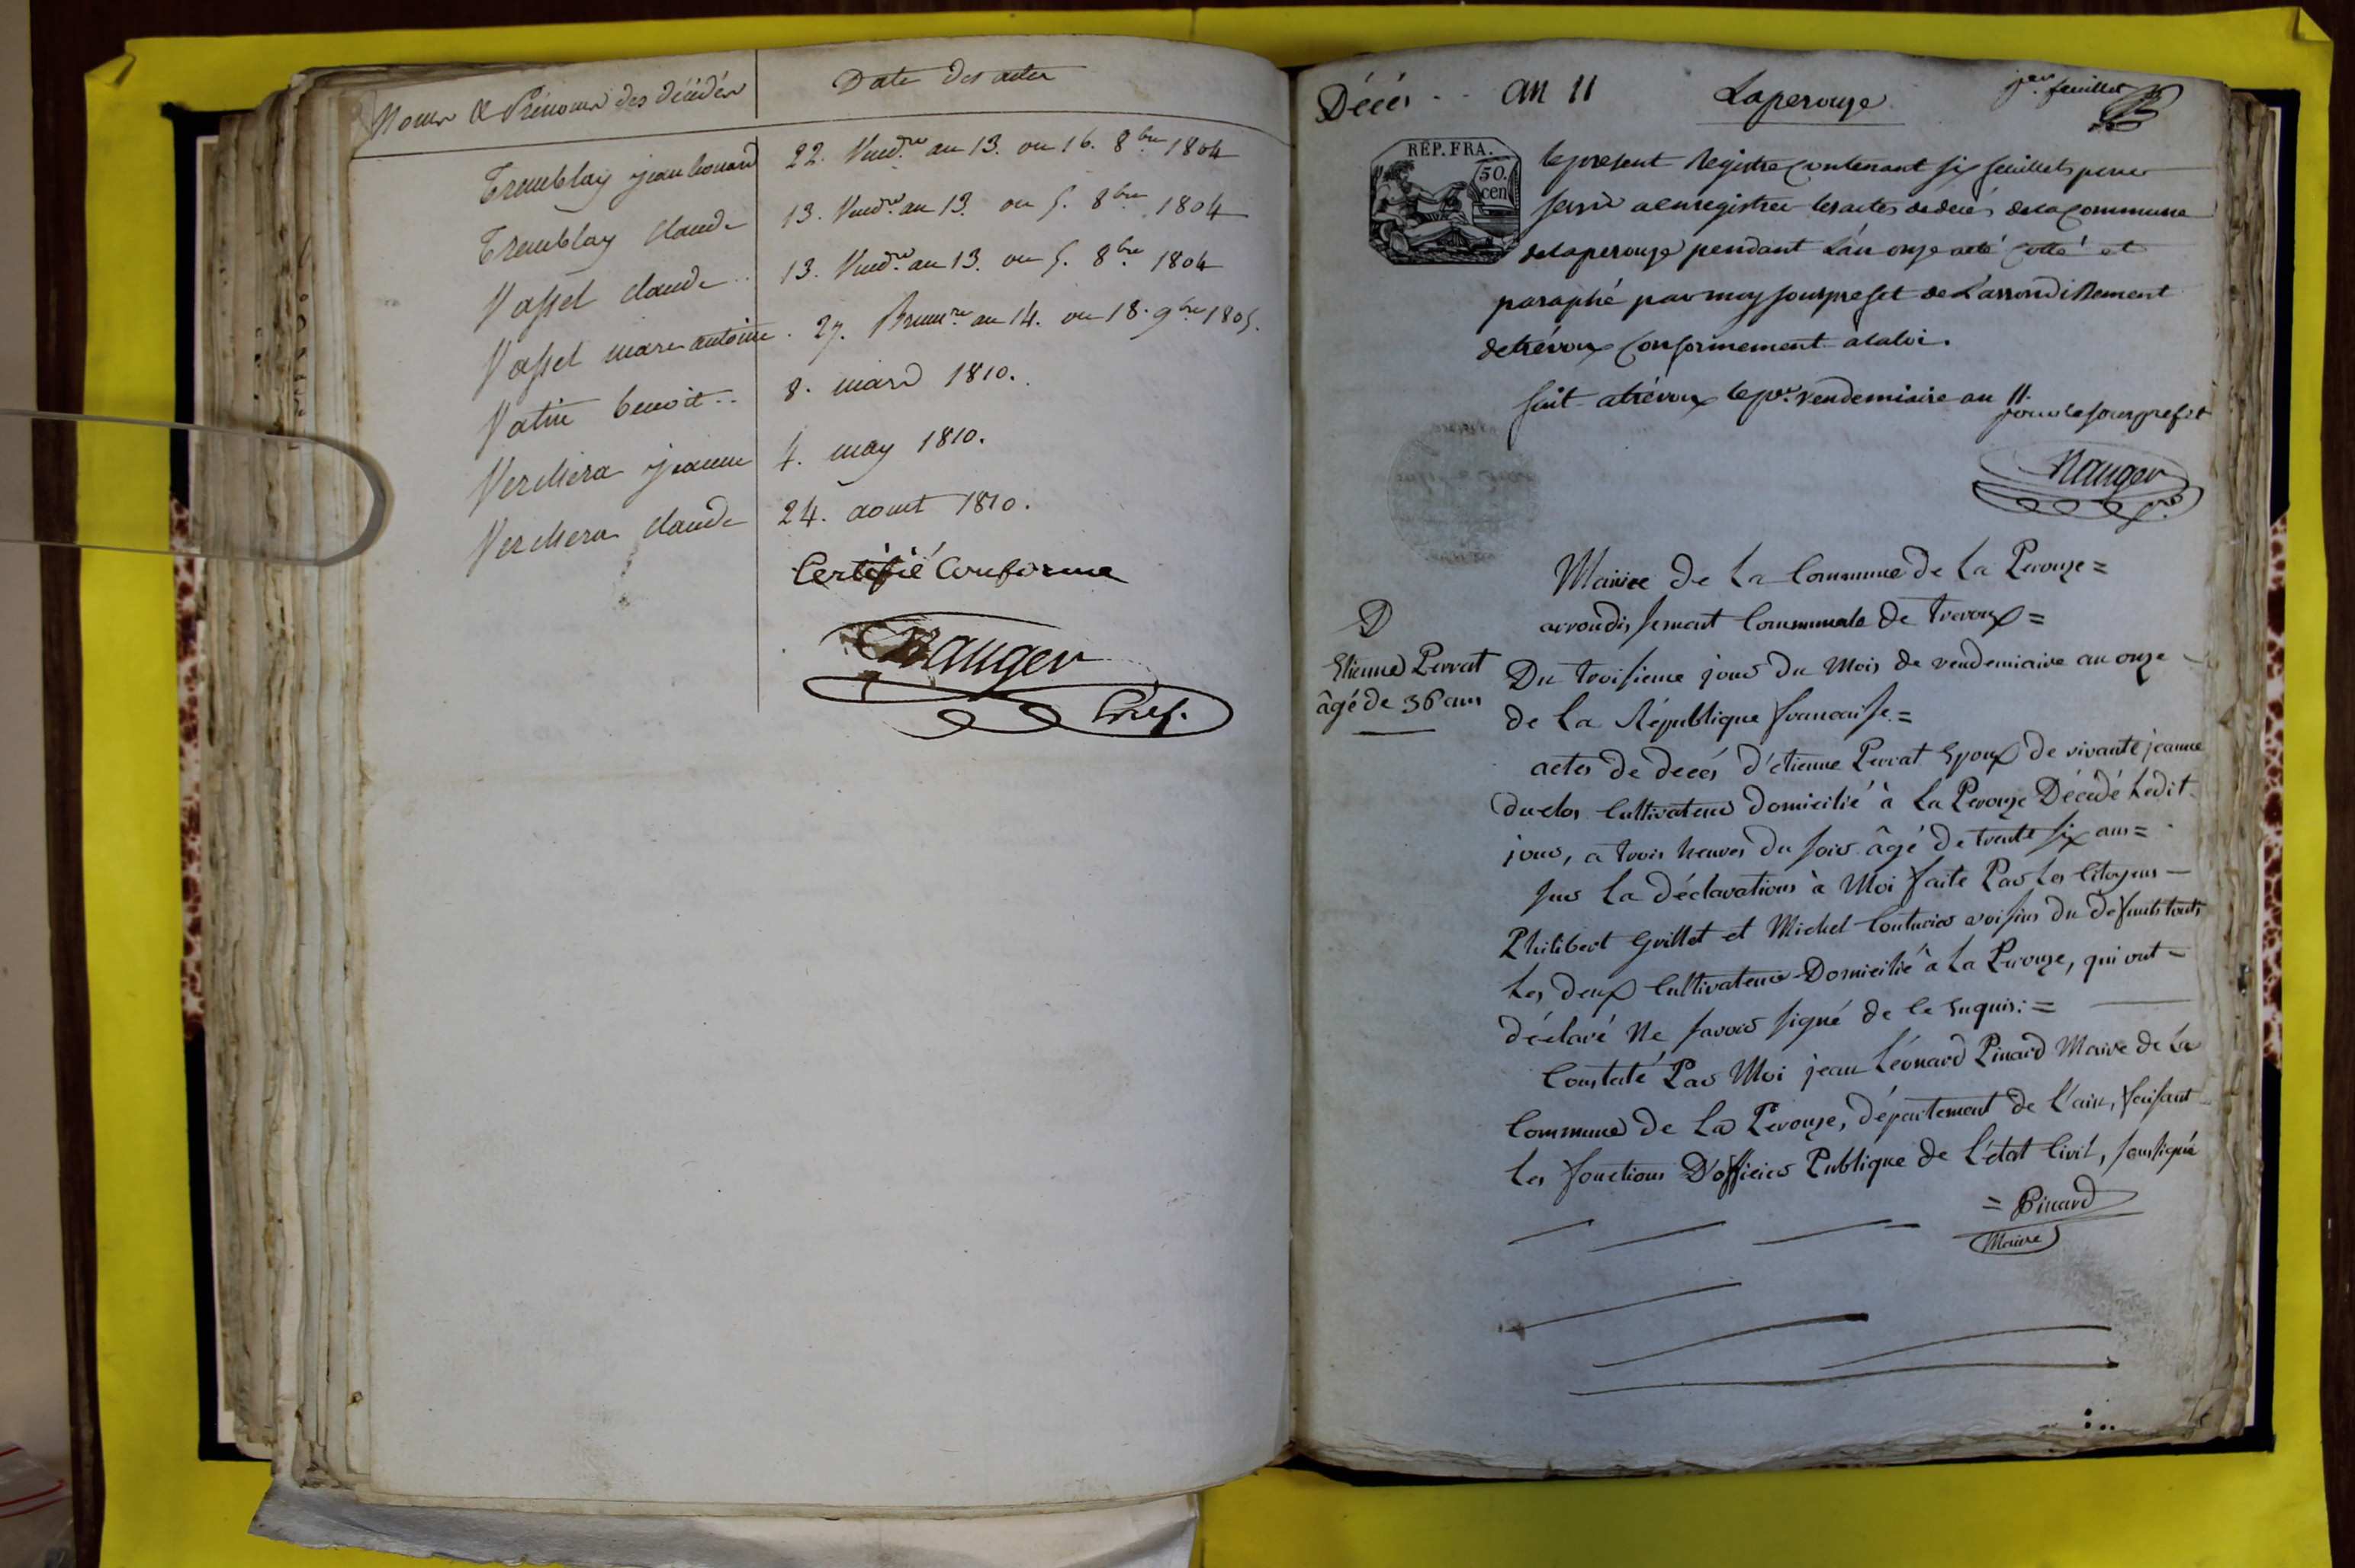 Noms & Prénoms des décédés
Date des actes
Tremblay jean léonard 22. Vend.re an 13. ou 16. 8bre 1804
Tremblay claude 13. Vend.re an 13. ou 5. 8bre 1804
Vassel claude .. 13. Vend.re an 13. ou 5. 8bre 1804
Vassel marc antoine . 27. Brum.re an 14. ou 18. 9bre 1805.
Vatin benoit .. 8. mars 1810.
Verchera jeanne 4. may 1810.
Verchera claude 24. aout 1810.
Certifié Conforme
Nauger
Décés - - an 11 Laperouze 1er feuillet
RÉP. FRA.
50.
cen
le present Registre contenant six feuillets pour
servir a enregistrer les actes de décés de la commune
de laperouze pendant l'an onze a été cotté et
paraphé par moy souspréfet de l'arrondissement
de trévoux conformement a la loi.
fait a trévoux le pr. vendemiaire an 11.
pour le sousprefet
Nauger
Mairie De La Commune De La Perouze =
arrondissement Communale De trevoux =
D
Etienne Perrat
âgé de 36 ans
Du troisieme jour Du Mois de vendemiaire an onze
de La République francaise =
actes De décés D'etienne Perrat Epoux De vivante jeanne
duclos Cultivateur Domicilié à La Perouze Décédé Ledit
jour, a trois heures Du soir âgé De trente six ans =
sur La déclarations à Moi faite Par Les Citoyens -
Philibert Guillet et Michel Couturier voisins Du Defunts touts
Les deux Cultivateurs Domicilié à La Perouze, qui ont =
déclaré Ne savoir signé de Ce Enquis : =
Constaté Par Moi jean Léonard Pinard Maire De La
Commune De La Perouze, Département de L'ain, faisant
Les fonctions D'officier Publique De L'état Civil, soussigné
= Pinard
Maire